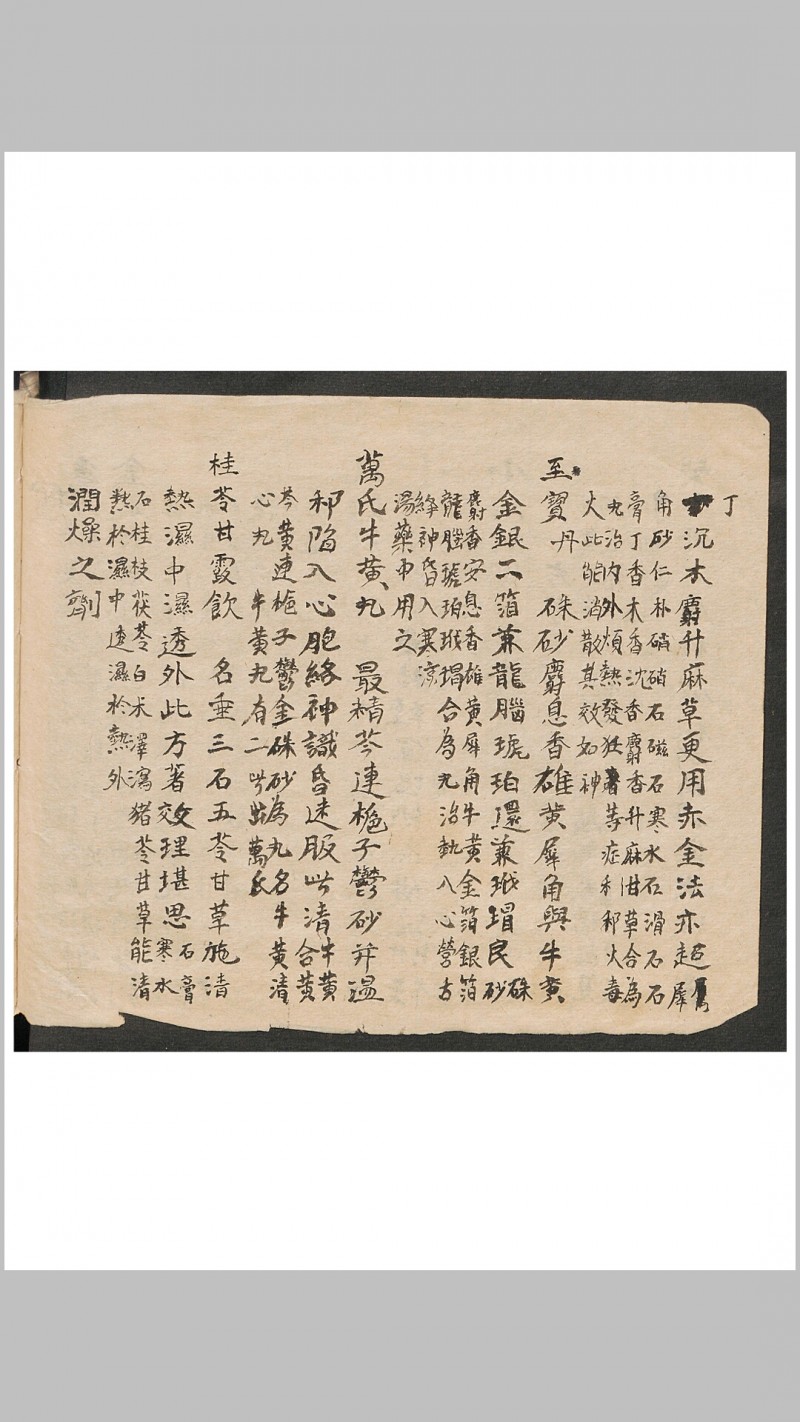 丁沉木麝升麻草更用赤金法亦超犀
角砂仁朴硝硝石磁石寒水石滑石石
膏丁香木香沈香麝香升麻甘草合為
丸治內外煩熱發狂等症和邪火毒
大此能消散其效如神
至寶丹 硃砂麝息香雄黃犀角與牛黃
金銀二箔兼龍腦琥珀還兼玳瑁民硃砂
麝香安息香雄黃犀角牛黃金箔銀箔
龍腦琥珀玳瑁合為丸治熱入心營古
絳神昏入寒涼
湯藥中用之
萬氏牛黃丸 最精芩連梔子鬱砂并溫
邪陷入心胞絡神識昏迷服此清牛黃合黃
芩黃連梔子鬱金硃砂為丸名牛黃清
心丸 牛黃丸有二此萬氏
桂苓甘露飲 名壺三石五苓甘草施清
熱濕中濕透外此方著效理堪思石膏寒水
石桂枝茯苓白朮澤瀉豬苓甘草能清
熱於濕中速濕於熱外
潤燥之劑